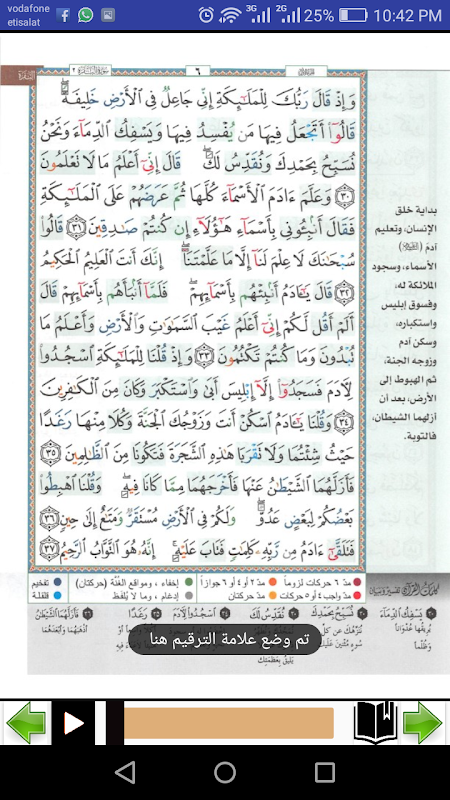 vodafone
etisalat
3G
2G
25%
10:42 PM
٦
وَإِذْ قَالَ رَبُّكَ لِلْمَلَٰٓئِكَةِ إِنِّي جَاعِلٌ فِي ٱلْأَرْضِ خَلِيفَةً ۖ
قَالُوٓا۟ أَتَجْعَلُ فِيهَا مَن يُفْسِدُ فِيهَا وَيَسْفِكُ ٱلدِّمَآءَ وَنَحْنُ
نُسَبِّحُ بِحَمْدِكَ وَنُقَدِّسُ لَكَ ۖ قَالَ إِنِّيٓ أَعْلَمُ مَا لَا تَعْلَمُونَ
٣٠ وَعَلَّمَ ءَادَمَ ٱلْأَسْمَآءَ كُلَّهَا ثُمَّ عَرَضَهُمْ عَلَى ٱلْمَلَٰٓئِكَةِ
فَقَالَ أَنۢبِـُٔونِي بِأَسْمَآءِ هَٰٓؤُلَآءِ إِن كُنتُمْ صَٰدِقِينَ ٣١ قَالُوا۟
سُبْحَٰنَكَ لَا عِلْمَ لَنَآ إِلَّا مَا عَلَّمْتَنَآ ۖ إِنَّكَ أَنتَ ٱلْعَلِيمُ ٱلْحَكِيمُ
٣٢ قَالَ يَٰٓـَٔادَمُ أَنۢبِئْهُم بِأَسْمَآئِهِمْ ۖ فَلَمَّآ أَنۢبَأَهُم بِأَسْمَآئِهِمْ قَالَ
أَلَمْ أَقُل لَّكُمْ إِنِّيٓ أَعْلَمُ غَيْبَ ٱلسَّمَٰوَٰتِ وَٱلْأَرْضِ وَأَعْلَمُ مَا
تُبْدُونَ وَمَا كُنتُمْ تَكْتُمُونَ ٣٣ وَإِذْ قُلْنَا لِلْمَلَٰٓئِكَةِ ٱسْجُدُوا۟
لِءَادَمَ فَسَجَدُوٓا۟ إِلَّآ إِبْلِيسَ أَبَىٰ وَٱسْتَكْبَرَ وَكَانَ مِنَ ٱلْكَٰفِرِينَ
٣٤ وَقُلْنَا يَٰٓـَٔادَمُ ٱسْكُنْ أَنتَ وَزَوْجُكَ ٱلْجَنَّةَ وَكُلَا مِنْهَا رَغَدًا
حَيْثُ شِئْتُمَا وَلَا تَقْرَبَا هَٰذِهِ ٱلشَّجَرَةَ فَتَكُونَا مِنَ ٱلظَّٰلِمِينَ ٣٥
فَأَزَلَّهُمَا ٱلشَّيْطَٰنُ عَنْهَا فَأَخْرَجَهُمَا مِمَّا كَانَا فِيهِ ۖ وَقُلْنَا ٱهْبِطُوا۟
بَعْضُكُمْ لِبَعْضٍ عَدُوٌّ ۖ وَلَكُمْ فِي ٱلْأَرْضِ مُسْتَقَرٌّ وَمَتَٰعٌ إِلَىٰ حِينٍ ٣٦
فَتَلَقَّىٰٓ ءَادَمُ مِن رَّبِّهِۦ كَلِمَٰتٍ فَتَابَ عَلَيْهِ ۚ إِنَّهُۥ هُوَ ٱلتَّوَّابُ ٱلرَّحِيمُ ٣٧
بداية خلق
الإنسان، وتعليم
آدم
الأسماء، وسجود
الملائكة له،
وفسوق إبليس
واستكباره،
وسكن آدم
وزوجه الجنة،
ثم الهبوط إلى
الأرض، بعد أن
أزلهما الشيطان،
فالتوبة.
مدّ ٦ حركات لزوماً مدّ ٢ أو ٤ أو ٦ جوازاً إخفاء، ومواقع الغُنَّة (حركتان) تفخيم
مدّ واجب ٤ أو ٥ حركات مدّ حركتان إدغام، وما لا يُلفَظ قلقلة
يَسْفِكُ الدِّمَآءَ
نُسَبِّحُ بِحَمْدِكَ
نُقَدِّسُ لَكَ
ٱسْجُدُوا۟ لِءَادَمَ
رَغَدًا
فَأَزَلَّهُمَا ٱلشَّيْطَٰنُ
تم وضع علامة الترقيم هنا